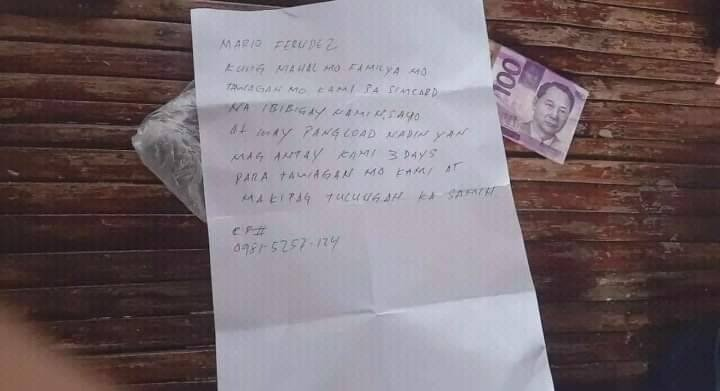 MARIO FERNDEZ
KUNG MAHAL MO FAMILYA MO
TAWAGAN MO KAMI SA SIMCARD
NA IBIBIGAY NAMIN, SAYO
AT MAY PANGLOAD NADIN YAN
MAG ANTAY KAMI 3 DAYS
PARA TAWAGAN MO KAMI AT
MAKIPAG TULUNGAN KA SAMIN.
CP#
0981-5257-124
100